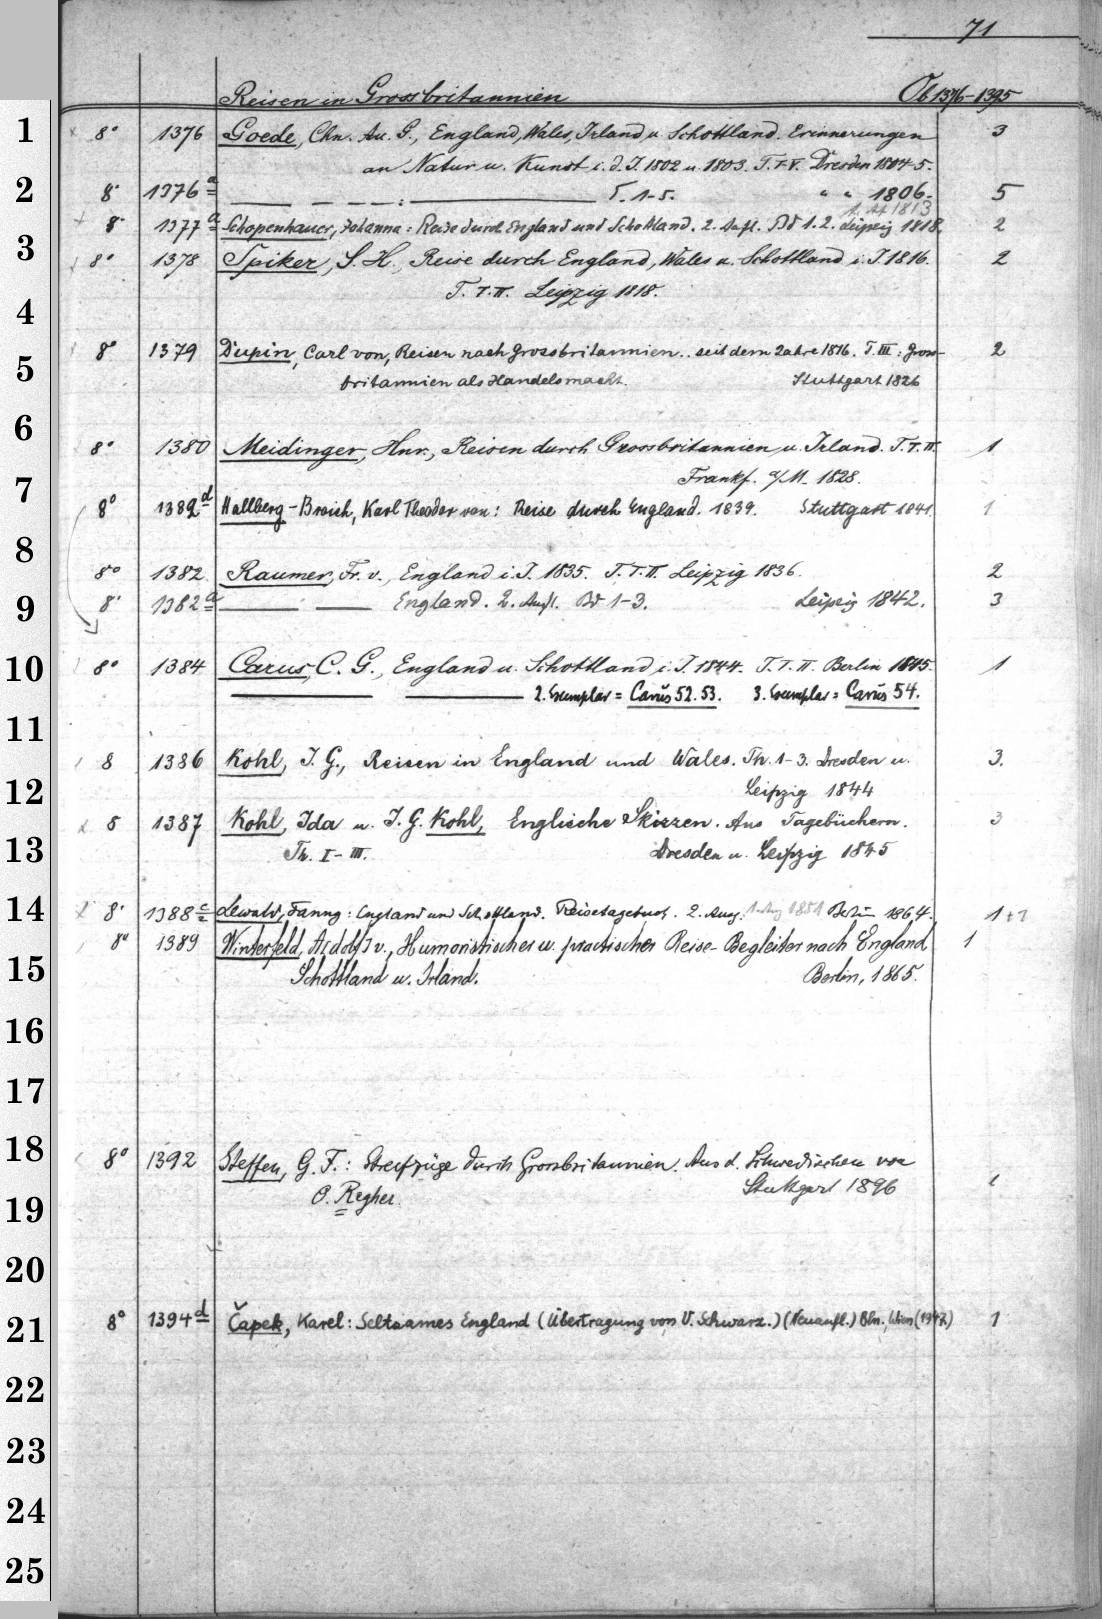 71
Reisen in Grossbritannien Ob 1376-1395
1
8° 1376 Goede, Chn. Au. G., England, Wales, Irland u. Schottland. Erinnerungen 3
an Natur u. Kunst i. d. J. 1802 u. 1803. T. I-V. Dresden 1804-5.
2
8° 1376a — — — — : — T. 1-5. " " 1806. 5
1. Afl 1813
8° 1377a Schopenhauer, Johanna: Reise durch England und Schottland. 2. Aufl. Bd 1.2. Leipzig 1818. 2
3
8° 1378 Spiker, S. H., Reise durch England, Wales u. Schottland i. J 1816. 2
T. I. II. Leipzig 1818.
4
8° 1379 Dupin, Carl von, Reisen nach Grossbritannien.. seit dem Jahre 1816. T. III: Gross- 2
5
britannien als Handelsmacht. Stuttgart 1826
6
8° 1380 Meidinger, Hnr., Reisen durch Grossbritannien u. Irland. T. I. II. 1
Frankf. a/M. 1828.
7
8° 1382d Hallberg-Broich, Karl Theodor von: Reise durch England. 1839. Stuttgart 1841. 1
8
8° 1382 Raumer, Fr. v., England i. J. 1835. T. I. II Leipzig 1836. 2
9
8° 1382a — — England. 2. Aufl. Bd 1-3. Leipzig 1842. 3
10
8° 1384 Carus, C. G., England u. Schottland i. J 1844. T. I. II. Berlin 1845. 1
— — 2. Exemplar = Carus 52.53. 3. Exemplar = Carus 54.
11
8 1386 Kohl, J. G., Reisen in England und Wales. Th. 1-3. Dresden u. 3.
12
Leipzig 1844
8 1387 Kohl, Ida u. J. G. Kohl, Englische Skizzen. Aus Tagebüchern. 3
13
Th. I-III. Dresden u. Leipzig 1845
14
8° 1388c Lewald, Fanny: England und Schottland. Reisetagebuch. 2. Ausg. 1. Ausg 1851 Berlin 1864. 1+1
8° 1389 Winterfeld, A[dolf] v., Humoristischer u. practischer Reise-Begleiter nach England 1
15
Schottland u. Irland. Berlin, 1865.
16
17
18
8° 1392 Steffen, G. F.: Streifzüge durch Grossbritannien. Aus d. Schwedischen von 1
O. Reyher. Stuttgart 1896
19
20
21
8° 1394d Čapek, Karel: Seltsames England (Übertragung von V. Schwarz.) (Neuaufl.) Bln., Wien (1947) 1
22
23
24
25